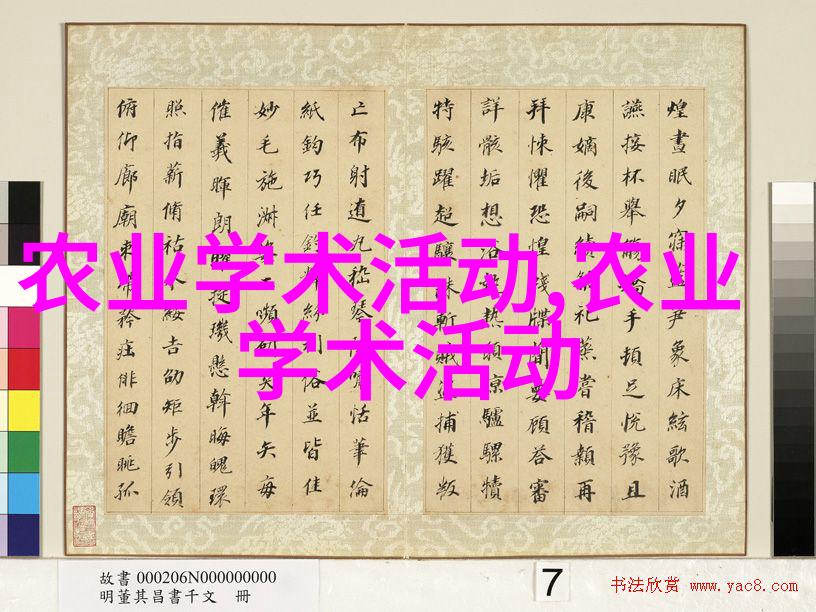 农业学术活动,农业
学术活动
煌晝眠夕寐藍尹象床絃歌酒
讌接杯舉觴手頓足悅豫且
康嫡後嗣續祀蒸嘗稽顙再
拜悚懼恐惶牋牒簡要顧答審
詳骸垢想浴執熱願涼驢騾犢
特駭躍超驤誅斬賊盜捕獲叛
亡布射遼丸嵇琴嘯恬筆倫
紙鈞巧任釣釋紛利俗並皆佳
妙毛施淑姿工嚬妍笑年矢每
催羲暉朗曜旋璣懸斡晦魄環
照指薪脩祜永綏吉劭矩步引領
俯仰廊廟束帶矜莊徘徊瞻眺孤
故書 000206N000000000
明董其昌書千文 冊
7
书法欣赏 www.yac8.com